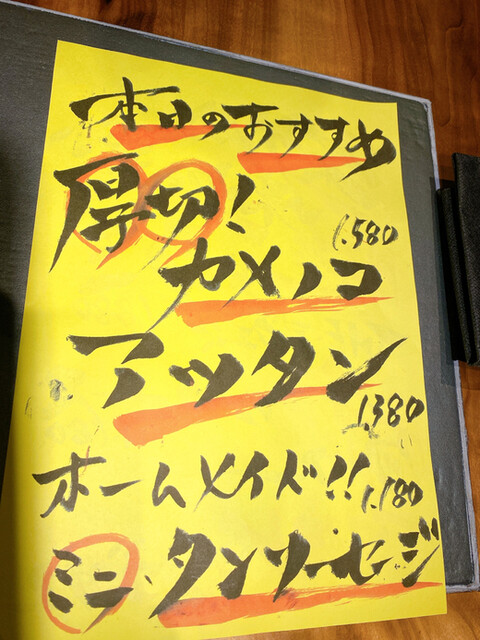 本日のおすすめ
厚切!
1.580
カメノコ
アツタン
1.380
ホームメイド!! 1.180
ミニ.タンソーセージ